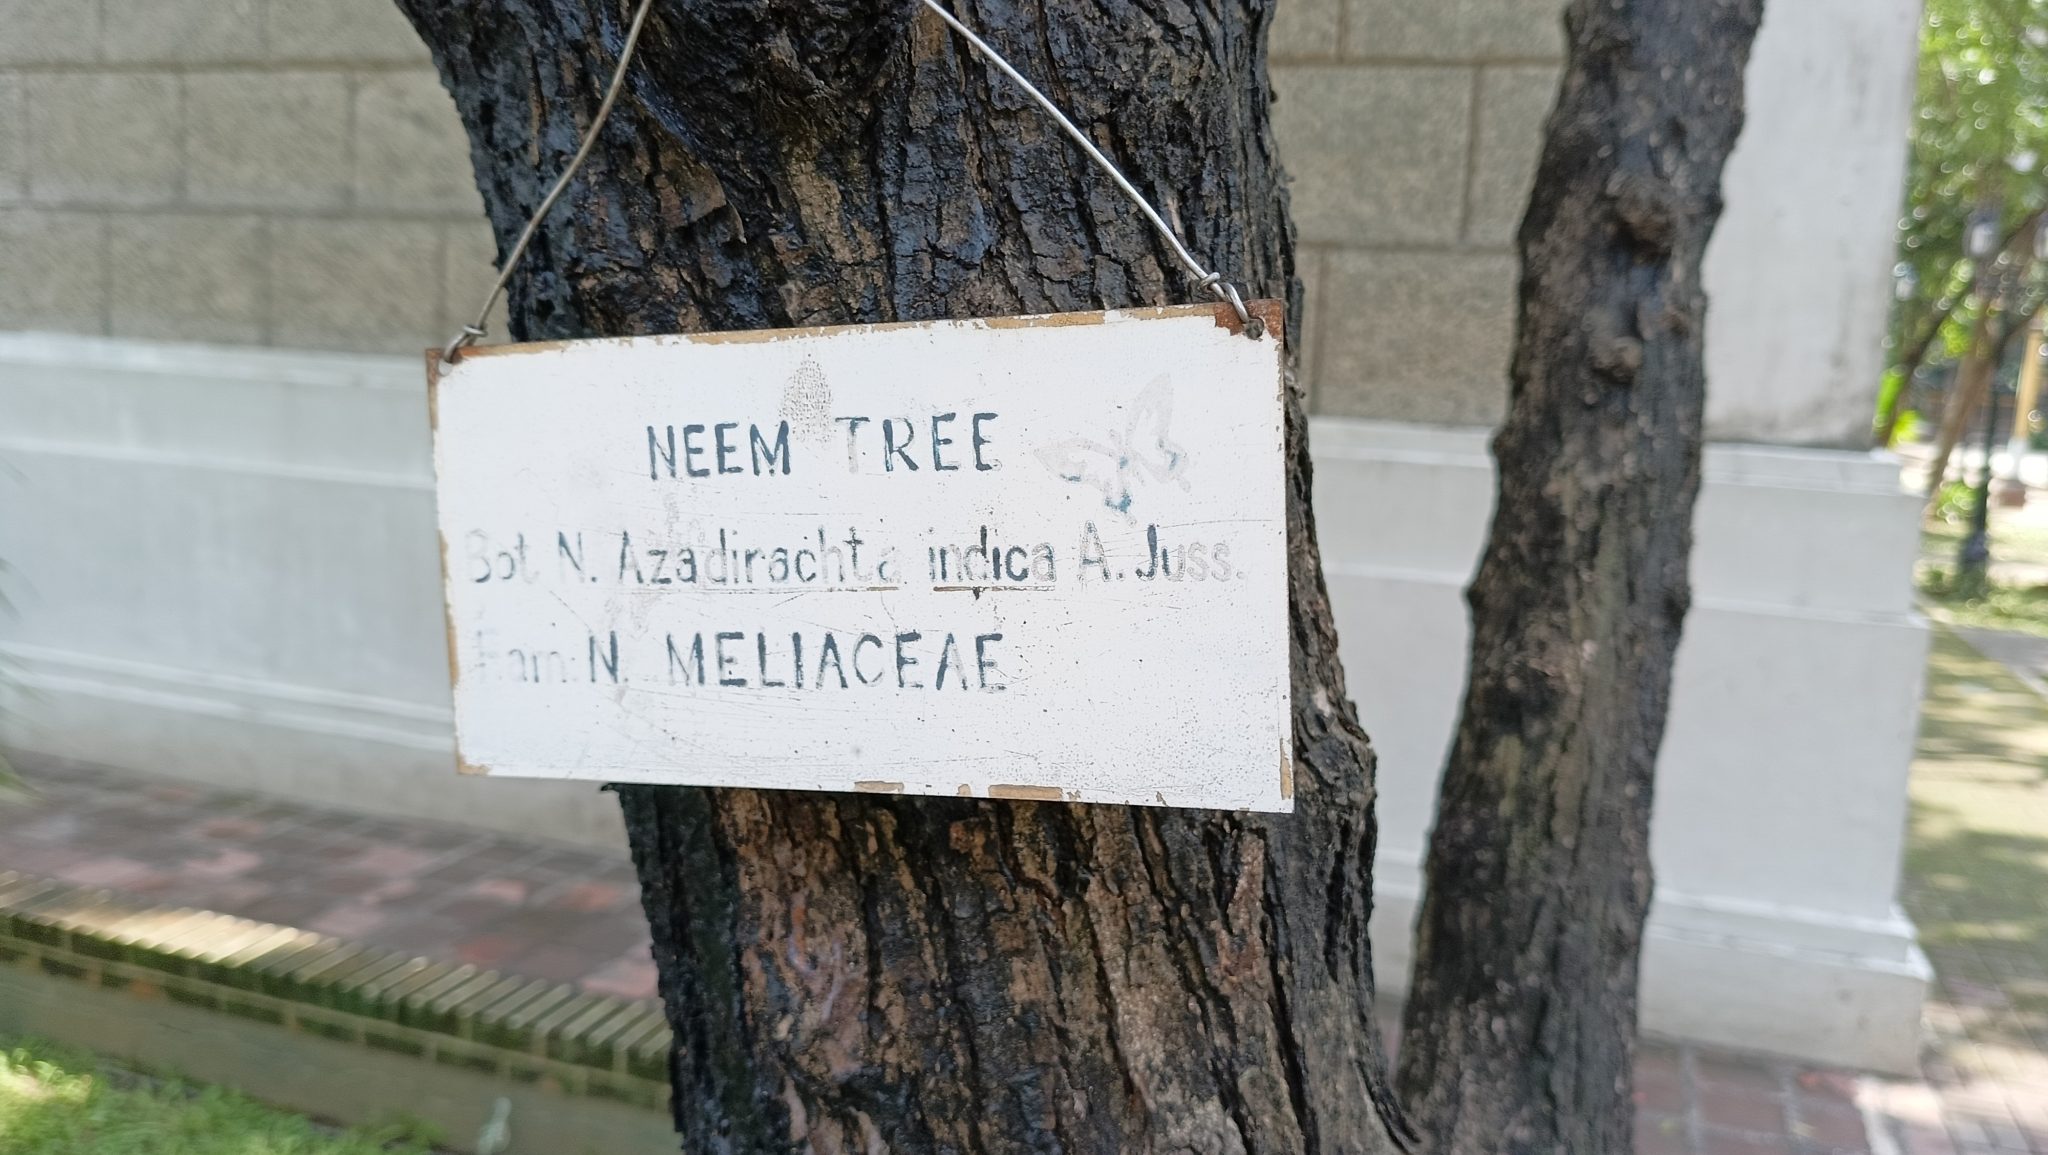 NEEM TREE
Bot N. Azadirachta indica A. Juss.
Fam: N. MELIACEAE